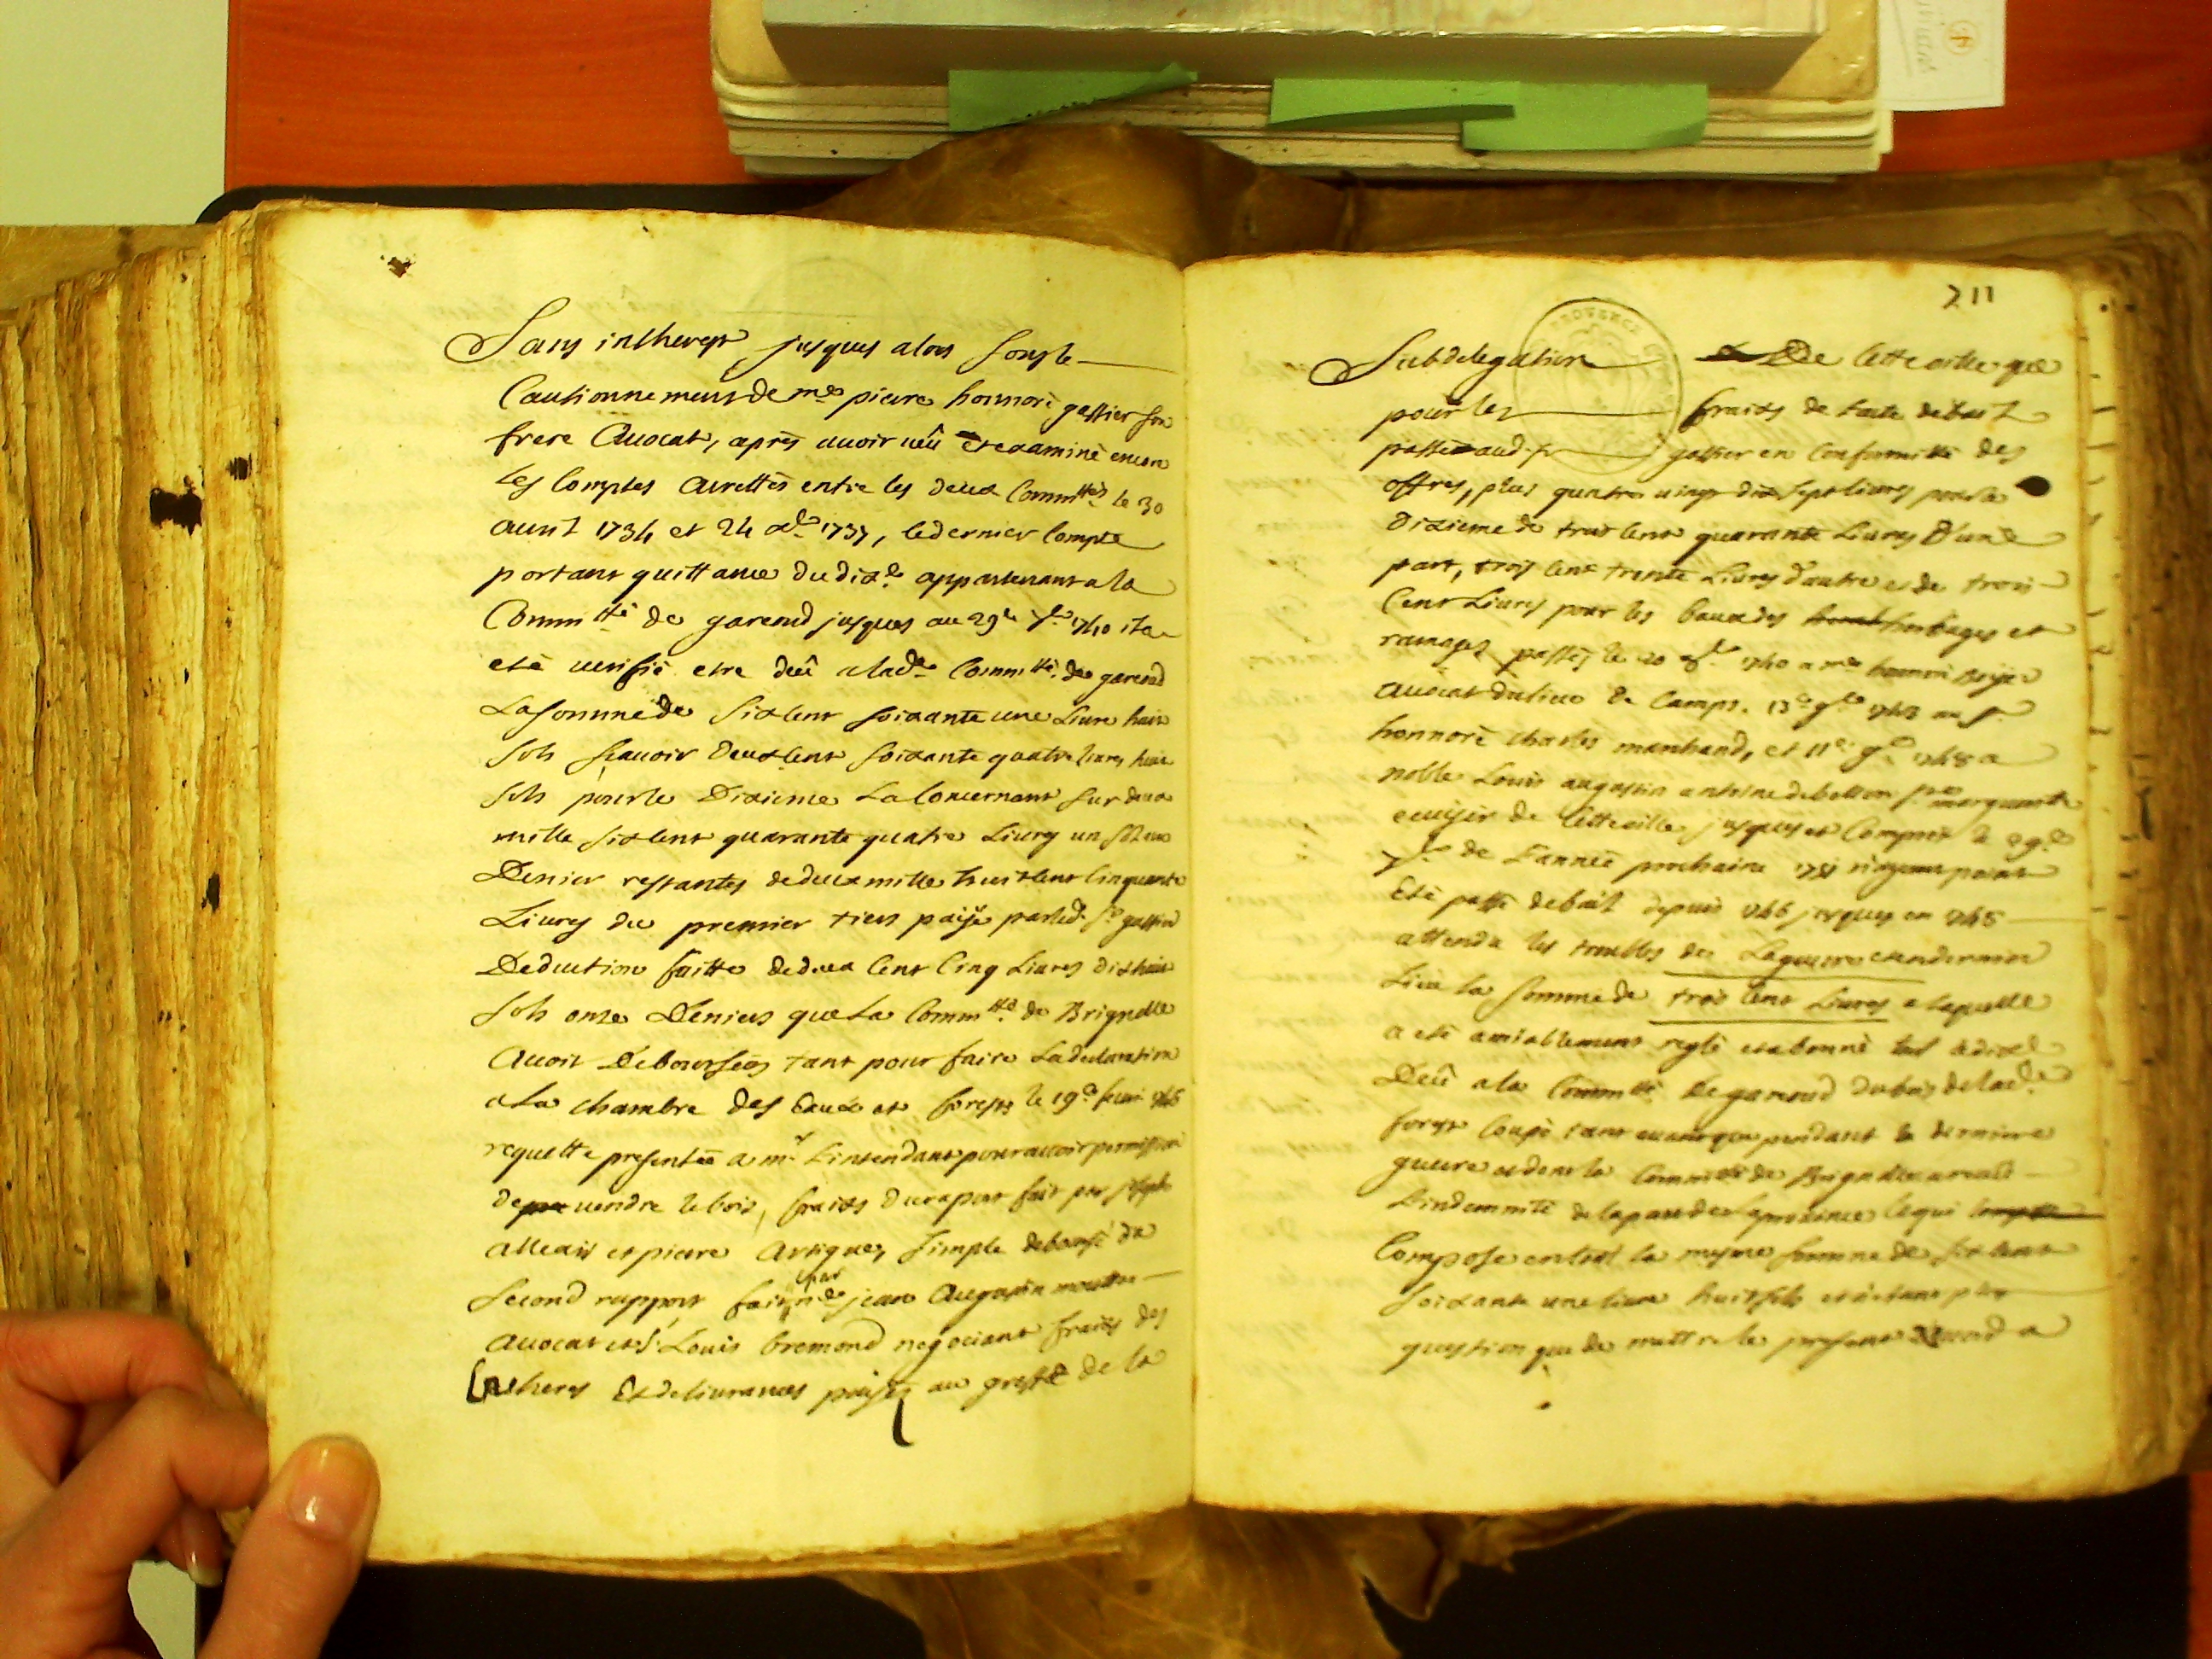 Sans intherest jusques alors sous le
Cautionnement de me pierre honnoré gassier son
frere Avocat, après avoir vêu et examiné encore
les Comptes arrettés entre les deux Commtés le 30
avril 1734 et 24 1737, le dernier Compte
portant quittance du dixe appartenant a la
Commté de gareoud jusques au 29e 1740 il a
eté verifié etre deû a lade Commté de gareoud
La somme de six cent soixante une Livre huit
sols scavoir deux cent soixante quatre livres huit
sols pour le Dixieme La Concernant sur deux
mille six cent quarante quatre Livres un sol
Denier restantes de deux mille huit cent Cinquante
Livres du premier tiers paijé par led. Sr gassier
Deduction faitte de deux Cent Cinq Livres dix huit
sols onze Deniers que La Commté de Brignolle
avoit Deboursées tant pour faire La declaration
a La chambre des Eaux et forests le 19e
requette presentée a mr L'intendant pour avoir permission
de vendre le bois, fraits du raport fait par joseph
et pierre Artigues, simple debourse du
second rapport, fait par me jean Augustin
avocat et Sr Louis bremond negociant fraits des
Encheres Et delivrances paijés au greffe de la
211
PROVENCE
Subdelegation De Cette ville que
pour les fraits de bail
passé aud. sr gassier en Conformitté des
offres, plus quatre vingt dix sept livres pour le
Dixieme de trois Cent quarante Livres D'une
part, trois Cent trente Livres d'autre et de trois
Cent Livres pour les baux des herbages et
ramages passés le 20 1740 a me honnoré
avocat du lieu de Camps. 13e au Sr
honnoré charles marchand, et 11e a
noble Louis augustin antoine de bellon
ecuijer de Cette ville, jusques et Compris le 29e
de L'année prochaine 1751 n'ayant point
Eté passé de bail depuis 1746 jusques en 1748
attendu les troubles de La guerre et en dernier
Lieu la somme de trois Cent Livres a laquelle
a eté amiablement reglé et abonné tout le dixe
Deû a la Commté de gareoud du bois de lade
forest Coupé tant avant que pendant la derniere
guerre et dont la Commté de Brignolle a retiré
L'indemnité de la part de la province Ce qui
Compose en tout la mesme somme de six cent
soixante une livre huit sols et n'etant plus
question que de mettre le present accord a